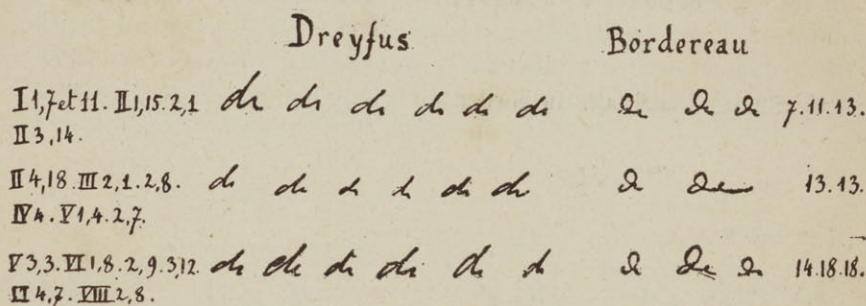 Dreyfus Bordereau
I1,7et11. II1,15.2,1 de de de de de de de de de 7.11.13.
II3,14.
II4,18.III2,1.2,8. de de de de de de de de 13.13.
IV4.V1,4.2,7.
V3,3.VI1,8.2,9.3,12. de de de de de de de de de 14.18.18.
4,7.VIII2,8.